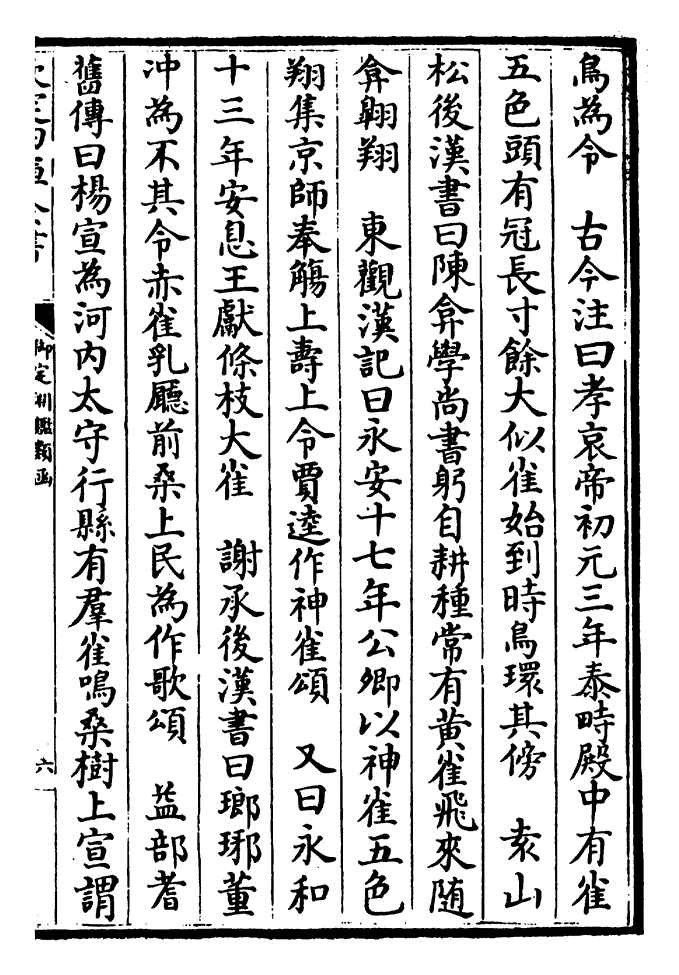 鳥為令　古今注曰孝哀帝初元三年泰畤殿中有雀
五色頭有冠長寸餘大似雀始到時鳥環其傍　袁山
松後漢書曰陳弇學尚書躬自耕種常有黃雀飛來隨
弇翱翔　東觀漢記曰永安十七年公卿以神雀五色
翔集京師奉觴上壽上令賈逵作神雀頌　又曰永和
十三年安息王獻條枝大雀　謝承後漢書曰瑯琊董
沖為不其令赤雀乳廳前桑上民為作歌頌　益部耆
舊傳曰楊宣為河內太守行縣有羣雀鳴桑樹上宣謂
欽定四庫全書
御定淵鑑類函
六